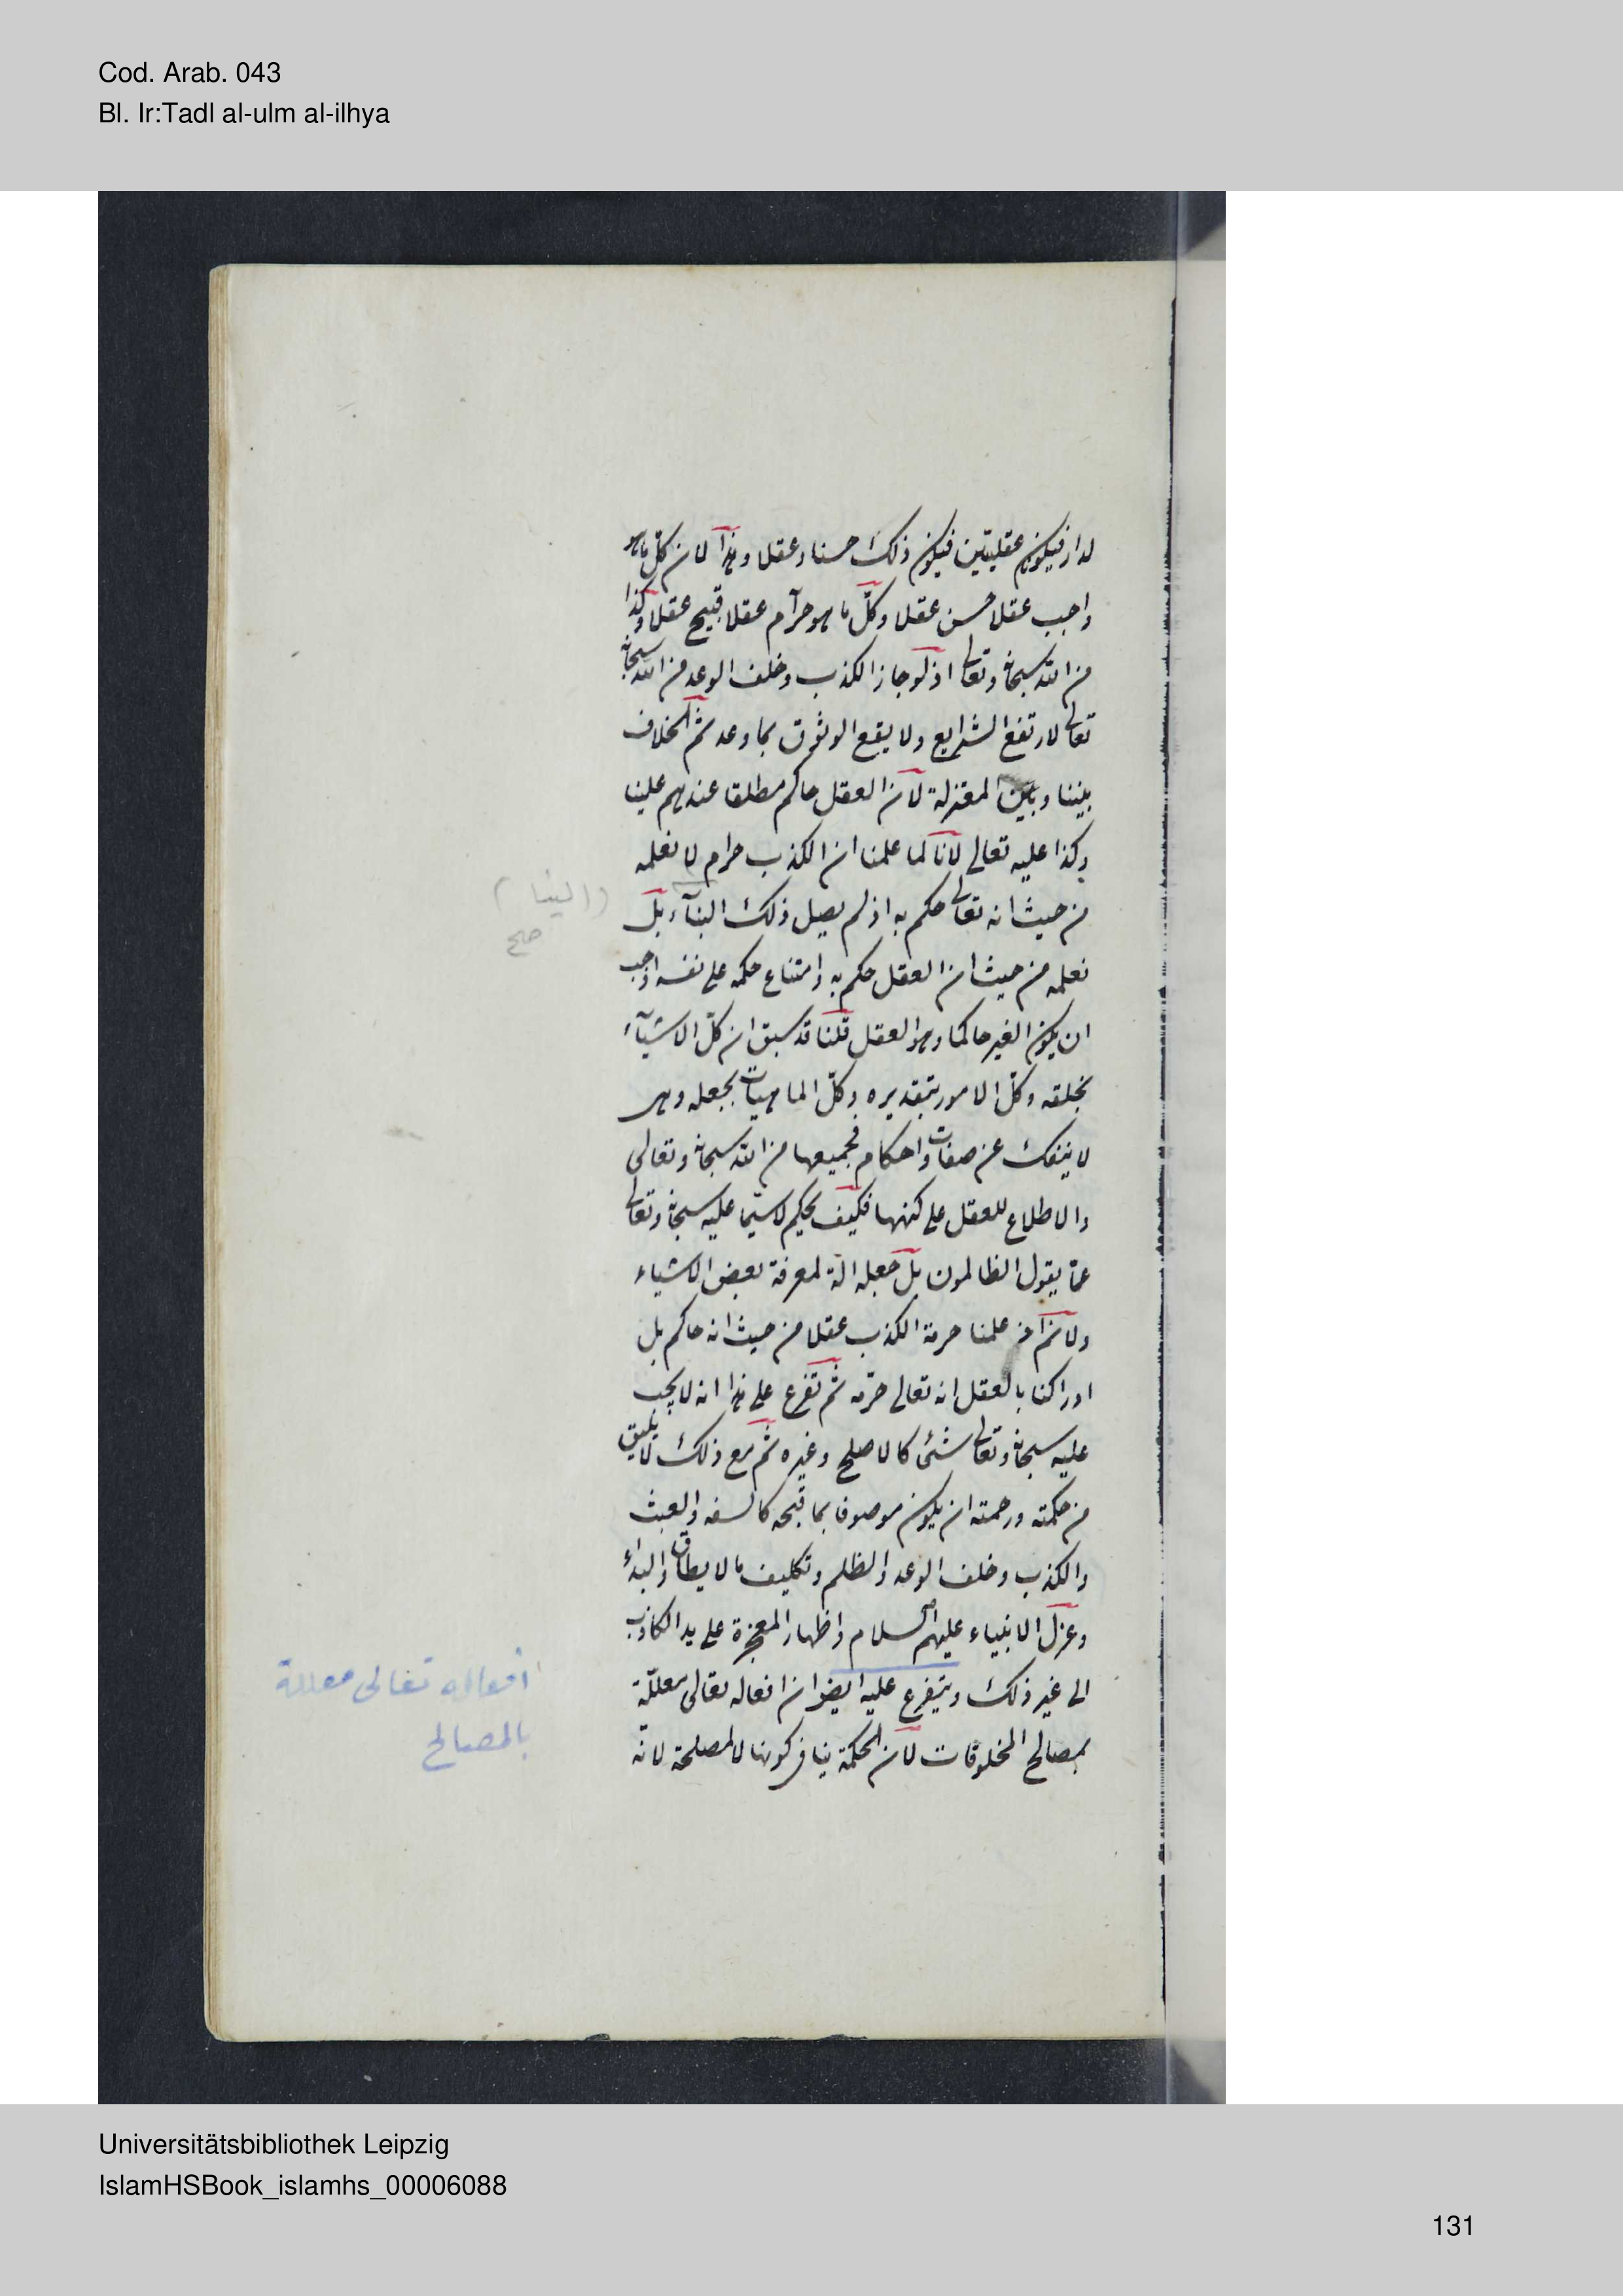 Cod. Arab. 043
Bl. Ir:Tadl al-ulm al-ilhya
لدار فيكون عقليتين فيكون ذلك حسنا وعقلا وهذا لان كل ما هو
واجب عقلا حسن عقلا وكلّ ما هو حرآم عقلا قبيح عقلا وكذا
من الله سبحانه وتعالى اذ لو جاز الكذب وخلف الوعد من الله سبحانه
تعالى لارتفع الشرايع ولا يقع الوثوق بما وعد ثم الخلاف
بيننا وبين المعتزلة لان العقل حاكم مطلقا عندهم علينا
وكذا عليه تعالى لانا لما علمنا ان الكذب حرام لا نعلمه
من حيث انه تعالى حكم به اذ لم يصل ذلك الينآء بل
(الينا)
صح
نعلمه من حيث ان العقل حكم به وامتناع حكمه على نفسه اوجب
ان يكون الغير حاكما وهو العقل قلنا قد سبق ان كلّ الاشيآء
بخلقه وكلّ الامور بتقديره وكلّ الماهيات بجعله وهى
لا ينفك عن صفات واحكام فجميعها من الله سبحانه وتعالى
والاطلاع للعقل على كنهها فكيف يحكم لا سيّما عليه سبحانه وتعالى
عمّا يقول الظالمون بل جعله الة لمعرفة بعض الاشياء
ولانم علمنا حرمة الكذب عقلا من حيث انه حاكم بل
ادراكنا بالعقل انه تعالى حرّمه ثم تفرع على هذا انه لا يجب
عليه سبحانه وتعالى شئ كالاصلح وغيره ثم مع ذلك لا يليق
من حكمته ورحمته ان يكون موصوفا بما قبحه كالسفه والعبث
والكذب وخلف الوعد والظلم وتكليف ما لا يطاق والبداء
وعزل الانبياء عليهم السلام واظهار المعجزة على يد الكاذب
الى غير ذلك ويتفرع عليه ايضا ان افعاله تعالى معللّة
بمصالح المخلوقات لان الحكمة ينافى كونها لا لمصلحة لانه
أفعاله تعالى معللة
بالمصالح
Universitätsbibliothek Leipzig
IslamHSBook_islamhs_00006088
131